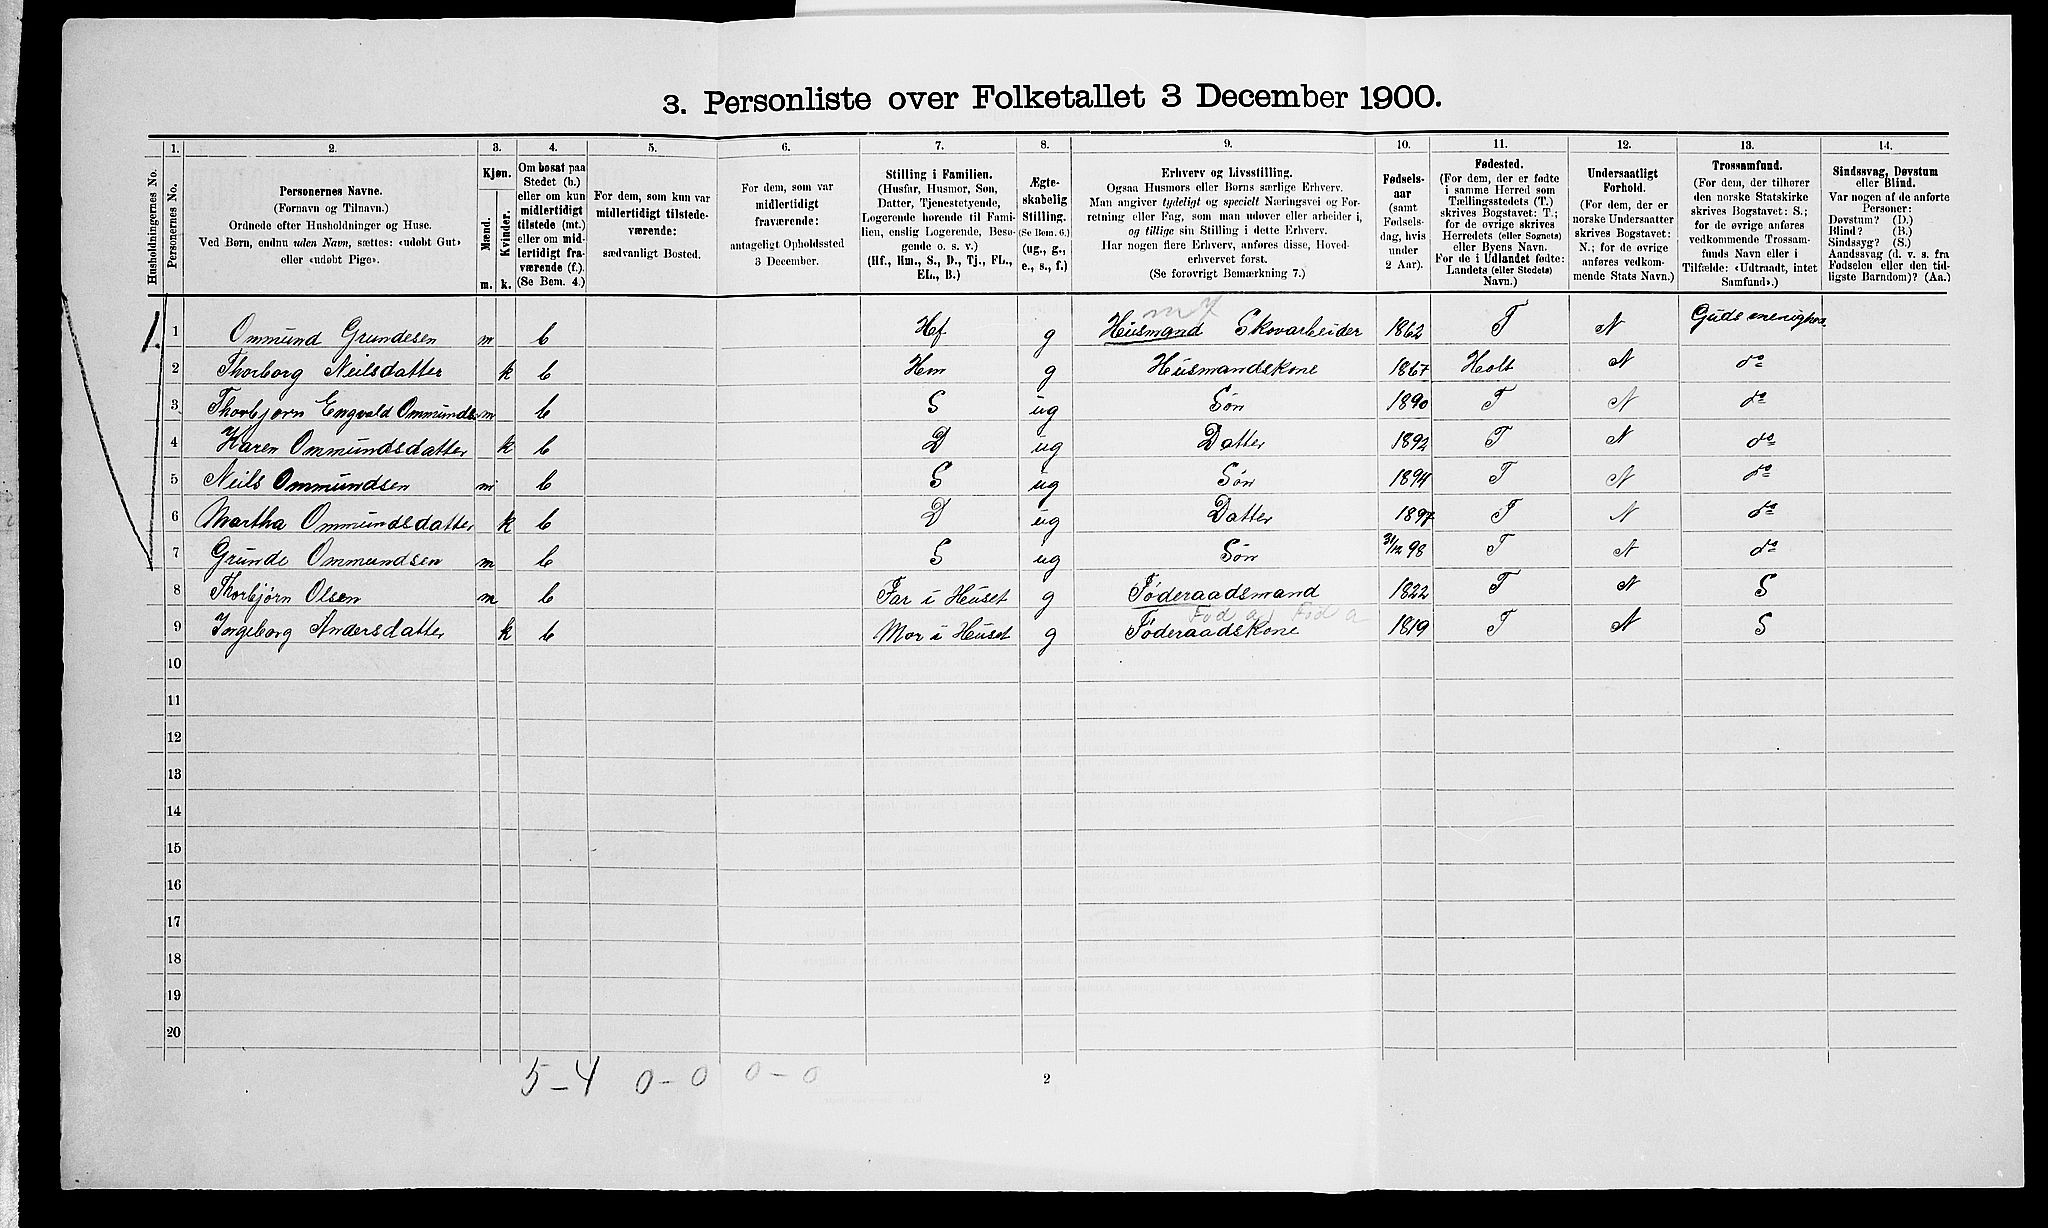 3. Personliste over Folketallet 3 December 1900.
1. 2. 3. 4. 5. 6. 7. 8. 9. 10. 11. 12. 13. 14.
Husholdningernes No.
Personernes No.
Personernes Navne.
(Fornavn og Tilnavn.)
Ordnede efter Husholdninger og Huse.
Ved Børn, endnu uden Navn, sættes: «udøbt Gut»
eller «udøbt Pige».
Kjøn.
Mænd.
Kvinder.
m. k.
Om bosat paa
Stedet (b.)
eller om kun
midlertidigt
tilstede (mt.)
eller om mid-
lertidigt fra-
værende (f.).
(Se Bem. 4.)
For dem, som kun var
midlertidigt tilstede-
værende:
sædvanligt Bosted.
For dem, som var
midlertidigt
fraværende:
antageligt Opholdssted
3 December.
Stilling i Familien.
(Husfar, Husmor, Søn,
Datter, Tjenestetyende,
Logerende hørende til Fami-
lien, enslig Logerende, Besø-
gende o. s. v.)
(Hf., Hm., S., D., Tj., FL.,
EL., B.)
Ægte-
skabelig
Stilling.
(Se Bem. 6.)
(ug., g.,
e., s., f.)
Erhverv og Livsstilling.
Ogsaa Husmors eller Børns særlige Erhverv.
Man angiver tydeligt og specielt Næringsvei og For-
retning eller Fag, som man udøver eller arbeider i,
og tillige sin Stilling i dette Erhverv.
Har nogen flere Erhverv, anføres disse, Hoved-
erhvervet først.
(Se forøvrigt Bemærkning 7.)
Fødsels-
aar
(samt
Fødsels-
dag, hvis
under
2 Aar).
Fødested.
(For dem, der er fødte
i samme Herred som
Tællingsstedets (T.)
skrives Bogstavet: T.;
for de øvrige skrives
Herredets (eller Sognets)
eller Byens Navn.
For de i Udlandet fødte:
Landets (eller Stedets)
Navn.)
Undersaatligt
Forhold.
(For dem, der er
norske Undersaatter
skrives Bogstavet:
N.; for de øvrige
anføres vedkom-
mende Stats Navn.)
Trossamfund.
(For dem, der tilhører
den norske Statskirke
skrives Bogstavet: S.;
for de øvrige anføres
vedkommende Trossam-
funds Navn eller i
Tilfælde: «Udtraadt, intet
Samfund».)
Sindssvag, Døvstum
eller Blind.
Var nogen af de anførte
Personer:
Døvstum? (D.)
Blind? (B.)
Sindssyg? (S.)
Aandssvag (d. v. s. fra
Fødselen eller den tid-
ligste Barndom)? (Aa.)
1. 1 Ommund Grundesen m b Hf g Husmand Skovarbeider 1862 T N Guds menighed
2 Thorborg Neilsdatter k b Hm g Husmandskone 1867 Holt N do
3 Thorbjørn Engvald Ommunds m b S ug Søn 1890 T N do
4 Karen Ommundsdatter k b D ug Datter 1892 T N do
5 Neils Ommundsen m b S ug Søn 1894 T N do
6 Martha Ommundsdatter k b D ug Datter 1897 T N do
7 Grunde Ommundsen m b S ug Søn 31/12 98 T N do
8 Thorbjørn Olsen m b Far i Huset g Føderaadsmand 1822 T N S
Fød a Fød a
9 Ingeborg Andersdatter k b Mor i Huset g Føderaadskone 1819 T N S
10
11
12
13
14
15
16
17
18
19
20
5-4 0-0 0-0
2